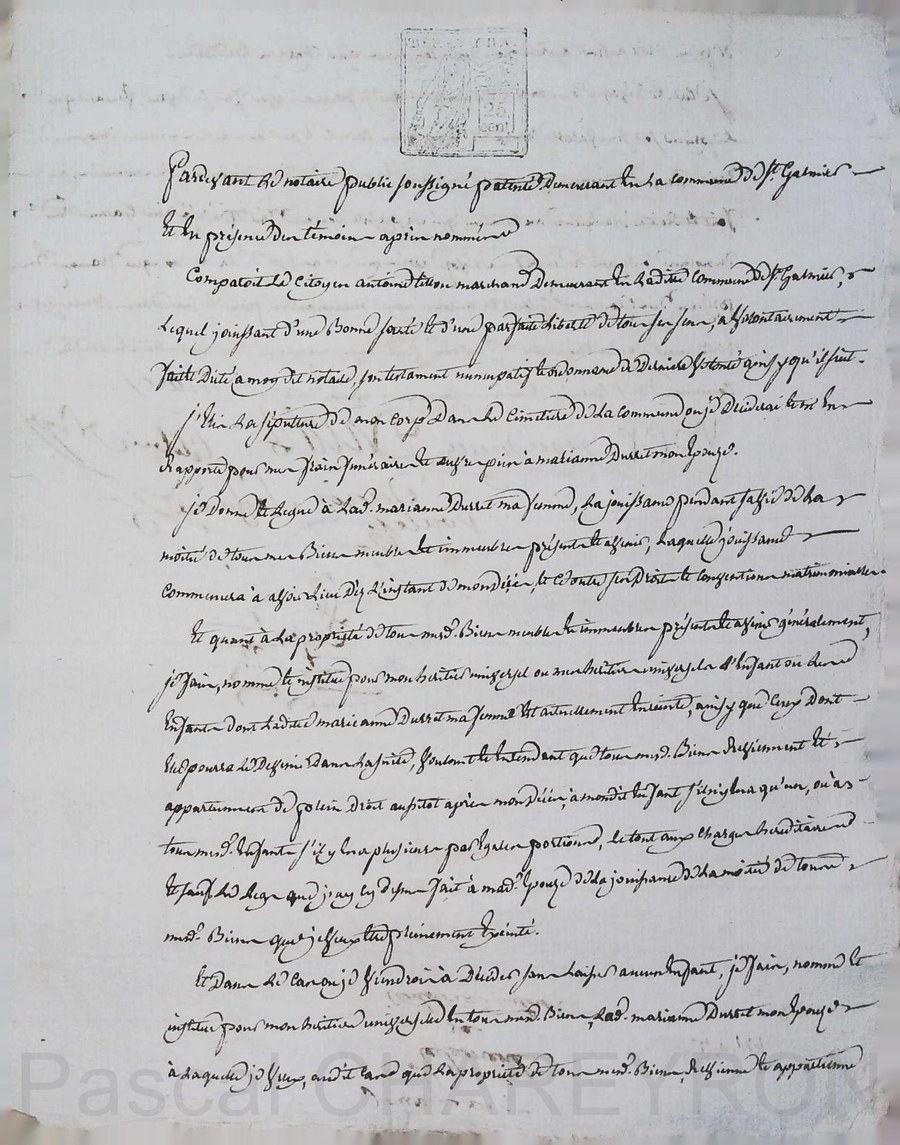 25
cent
Pardevant le notaire public soussigné patenté demeurant en la commune de St. Galmier
et en présence des témoins après nommés
Comparoit le Citoyen antoine lion marchand demeurant en ladite Commune de St. Galmier,
Lequel jouissant d'une Bonne santé et d'une parfaite liberté de tous ses sens, a volontairement
fait et dicté a moy dit notaire, son testament nuncupatif et ordonnance de Derniere volonté ainsy qu'il suit.
j'élis la sépulture de mon corps dans le cimetiere de la Commune ou je Décederai et m'en
Rapporte pour mes frais funéraires et œuvres pies à marianne Durret mon Epouze.
je Donne et Legue à Lad. marianne Durret ma femme, La jouissance pendant sa vie de la
moitié de tous mes Biens meubles et immeubles présents et avenir, Laquelle jouissance
commencera à avoir Lieu Dèz L'instant de mon décès, et ce outre ses Droits et Conventions matrimoniales.
Et quant à La propriété de tous mesd. Biens meubles et immeubles présents et avenir généralement,
je fais, nomme et institue pour mon héritier universel ou mes héritiers universels L'Enfant ou les
Enfants dont Ladite marieanne Durret ma femme est actuellement Enceinte, ainsy que Ceux dont
Elle pourra L'être Dans La suite, voulant et entendant que tous mesd. Biens reviennent et
appartiennent de plein droit aussitot après mon Décès, à mondit Enfant s'il n'y en a qu'un, ou à
tous mesd. Enfants s'il y en a plusieurs par égales portions, le tout aux Charges héréditaires
et sauf Le Legs que j'ay cy dessus fait à mad. Epouze de la jouissance de La moitié de tous
mesd. Biens que je veux être pleinement Exécuté.
Et Dans Le Cas ou je viendrois à Décéder sans Laisser aucun Enfant, je fais, nomme et
institue pour mon héritiere universelle en tous mesd. Biens, Lad. marianne Durret mon Epouze
à Laquelle je veux, audit Cas que La propriété de tous mesd. Biens, revienne et appartienne
Pascal CHAREYRON